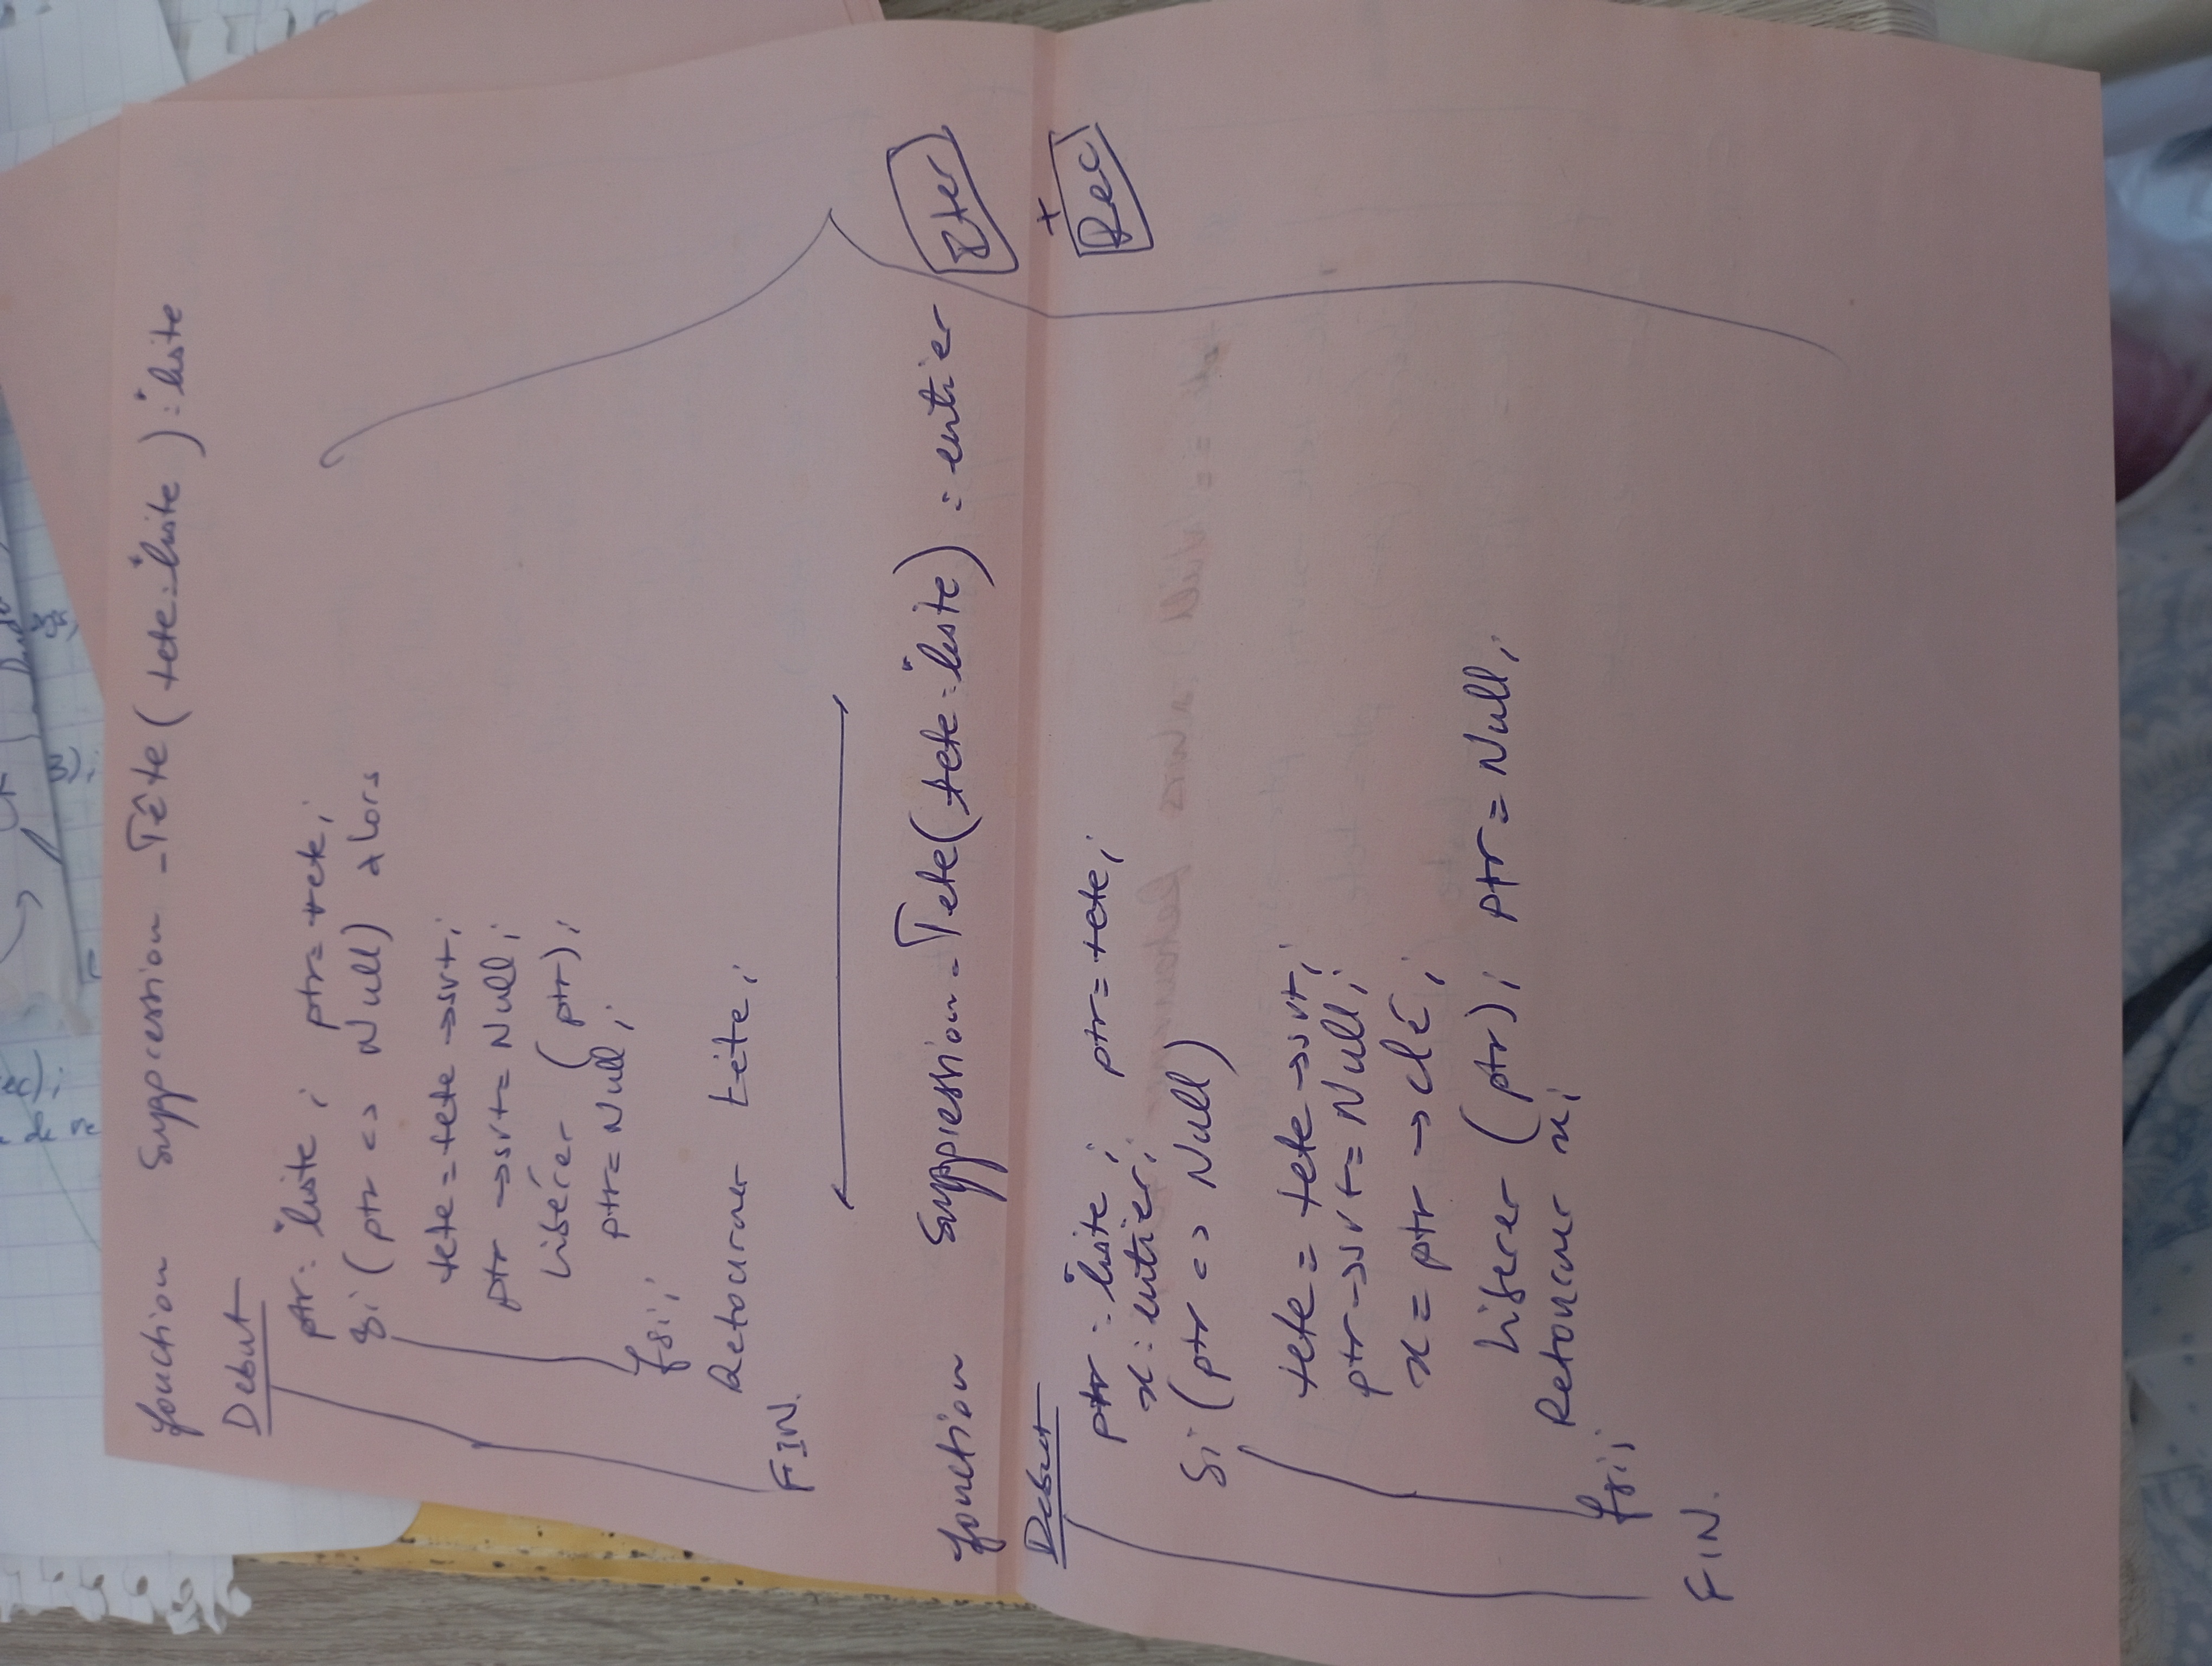 fonction Suppression_Tête(tete: *liste): *liste
Debut
ptr: *liste; ptr= tete;
Si (ptr <> Null) alors
tete = tete →svt;
ptr →svt= Null;
Libérer (ptr);
ptr= Null;
fsi;
Retourner tête;
FIN.
fonction Suppression_Tete(tete: *liste) : entier
Iter
+
Rec
Debut
ptr : *liste; ptr= tete;
x: entier;
Si (ptr <> Null)
tete = tete →svt;
ptr→svt= Null;
x = ptr →clé;
Liberer (ptr); ptr = Null;
Retourner x;
fsi;
FIN.